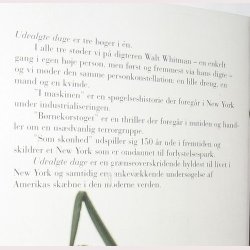 Udvalgte dage er tre bøger i én.
I alle tre støder vi på digteren Walt Whitman – en enkelt
gang i egen høje person, men først og fremmest via hans digte –
og vi møder den samme personkonstellation: en lille dreng, en
mand og en kvinde.
"I maskinen" er en spøgelseshistorie der foregår i New York
under industrialiseringen.
"Børnekorstoget" er en thriller der foregår i nutiden og hand-
ler om en usædvanlig terrorgruppe.
"Som skønhed" udspiller sig 150 år ude i fremtiden og
skildrer et New York som er omdannet til forlystelsespark.
Udvalgte dage er en grænseoverskridende hyldest til livet i
New York og samtidig en tankevækkende undersøgelse af
Amerikas skæbne i den moderne verden.